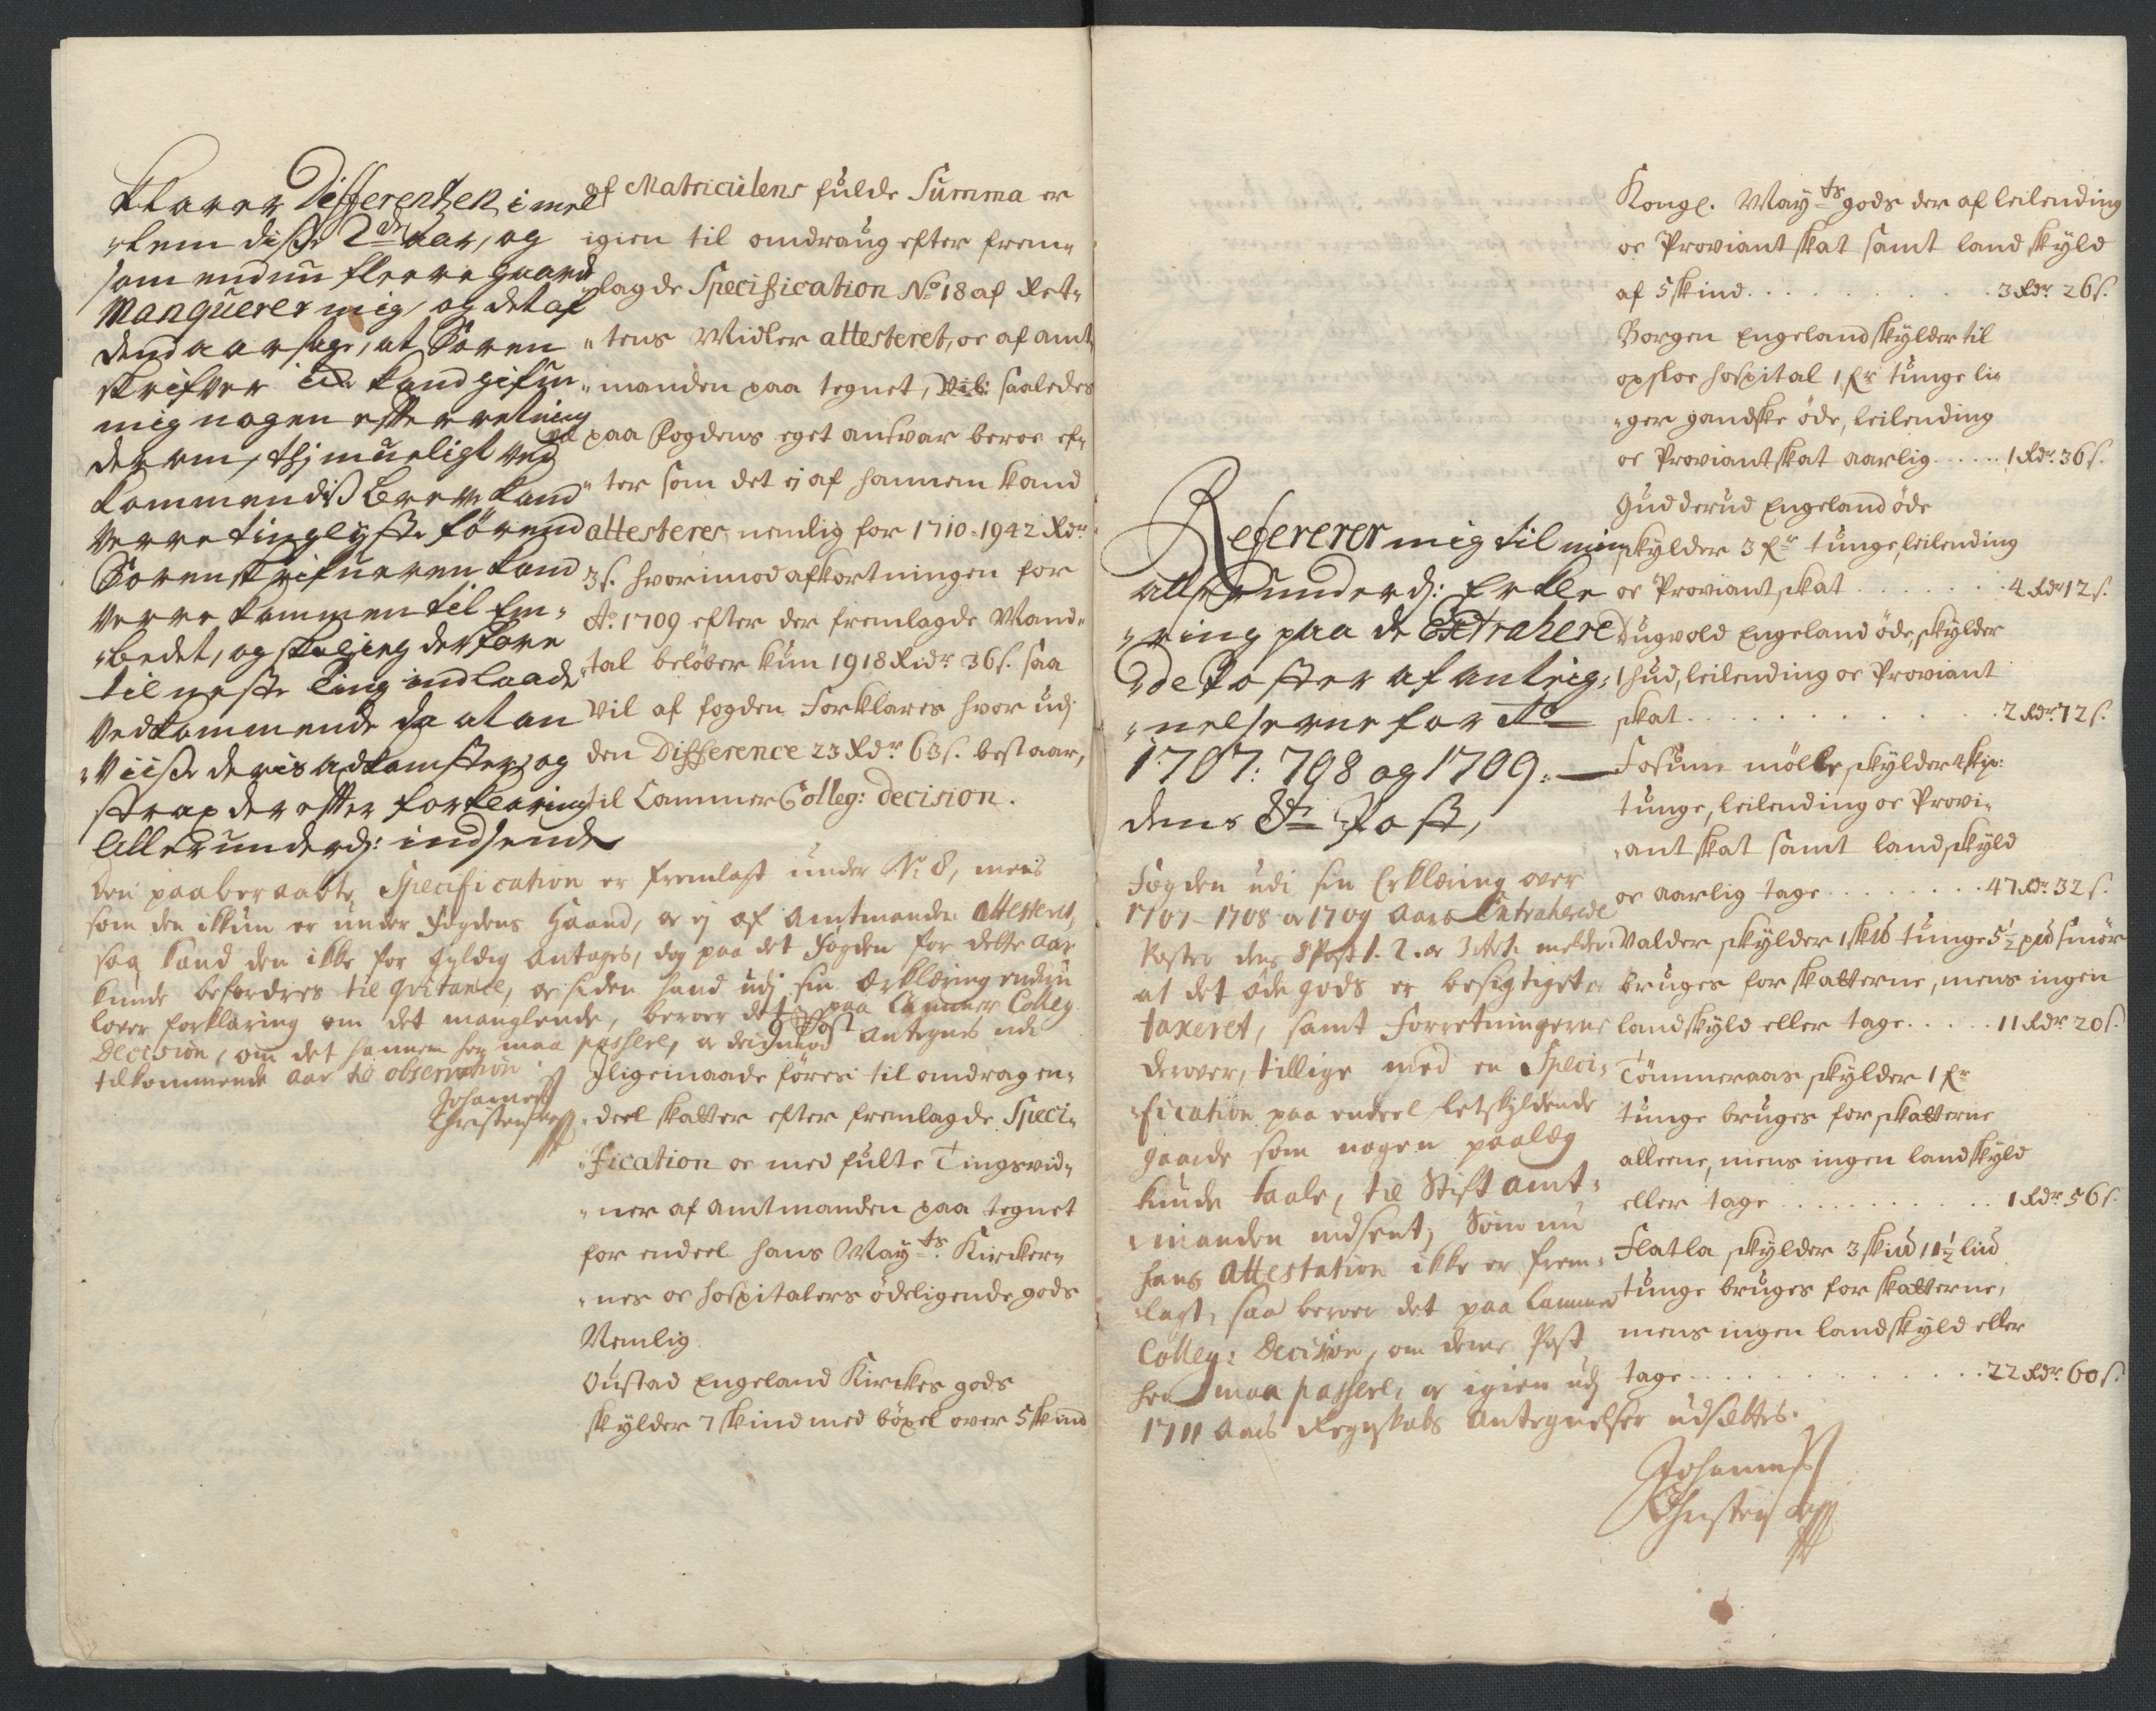 klarer Differentzen imel
"lem disse 2de aar, og
som endnu fleere gaarde
Manquerer mig, og det af
dend aarsage, at Soren
skrifver icke kand gifue
mig nogen effterretning
derom, thj mueligt ved
kommendis breve kand
verre tinglyste förend
Sorenskrifueren kand
verre kommen til Em-
"bedet, og skal jeg derfore
til neste Ting indlaade
vedkommende da at an
"viise deris adkomster, og
strax derefter forklaring
allerunderd: indsende
af Matriculens fulde Summa er
igien til omdraug efter frem-
"lagde Specification No 18 af Ret-
"tens Midler attesteret, oc af amt
"manden paa tegnet, saaledes
vil paa fogdens eget ansvar beroe ef-
"ter som det ej af hannem kand
attesteres nemlig for 1710 - 1942 Rdr
3 s. hvorimod afkortningen for
Ao. 1709 efter der fremlagde Mand-
"tal beløber kun 1918 Rdr 36 s. saa
vil af fogden Forklares hvor udj
den Difference 23 Rdr 63 s. bestaar,
til Cammer Colleg: decision.
Den paaberaabte Specification er fremlagt under No: 8, mens
som den ikkun er under Fogdens Haand, og ej af Amtmanden attesteret,
saa kand den ikke for gyldig antages, dog paa det Fogden for dette aar
kunde befordres til qvitance, og siden hand udj sin Erklæring endnu
lover forklaring om det manglende, beroer det paa Cammer Colleg.
Decision, om det hannem her maa passere, og derimod antegnes udi
tilkommende aar til observation.
Johannes
Christensen
9 Post
Iligemaade føres til omdrag en-
"deel skatter efter fremlagde Speci-
"fication oc med fulte Tingsvid-
"ner af amtmanden paa tegnet
for endeel hans Mayts. Kircker-
"nes oc hospitalers ödeligende gods
Nemlig
Oustad Engeland Kirckes gods
skylder 7 skind med böxel over 5 skind
Kongl. Mayts gods der af leilending
oc Proviant skat samt land skyld
af 5 skind . . . . . . . 3 Rdr. 26 s.
Borgen Engeland skylder til
opsloe hospital 1 fr tunge li-
"ger gandske öde, leilending
oc Proviantskat aarlig . . . . . 1 Rdr. 36 s.
Gudderud Engeland öde
skylder 3 fr tunge, leilending
oc Proviant skat . . . . . . . 4 Rdr 12 s.
Dugvold Engeland öde, skylder
1 hud, leilending oc Proviant
skat . . . . . . . . . . 2 Rdr. 72 s.
Fosum mölle skylder 4 skp:
tunge, leilending oc Provi-
"ant skat samt landskyld
oc aarlig tage . . . . . . . . 47 Rdr. 32 s.
Valder skylder 1 skd tunge 5½ pd smör
bruges for skatterne, mens ingen
landskyld eller tage . . . . . 11 Rdr 20 s.
Tömmeraas skylder 1 fr
tunge bruges for skatterne
alleene, mens ingen landskyld
eller tage . . . . . . . . . . 1 Rdr. 56 s.
Flatla skylder 3 skud 11½ lud
tunge bruges for skatterne,
mens ingen landskyld eller
tage . . . . . . . . . . . 22 Rdr. 60 s.
Refererer mig til min
allerunderd: Erkle
"ring paa de Extrahere
"de Poster af anteig-
"nelserne for Ao
1707: 708 og 1709: —
dens 8de Post,
Fogden udi sin Erklæring over
1707 - 1708 og 1709 Aars Extraherede
Poster dens 8 Post 1. 2. og 3 Art. melder
at det öde gods er besigtiget og
taxeret, samt Forretningerne
derover, tillige med en Speci-
"fication paa endeel letskyldende
gaarde som nogen paalæg
kunde taale, til Stiftamt-
"manden indsent, Som nu
hans Attestation ikke er frem-
"lagt, saa beroer det paa Cammer
Colleg: Decision, om denne Post
her maa passere, og igien udj
1711 Aars Regnskabs Antegnelser udsættes.
Johannes
Christensen